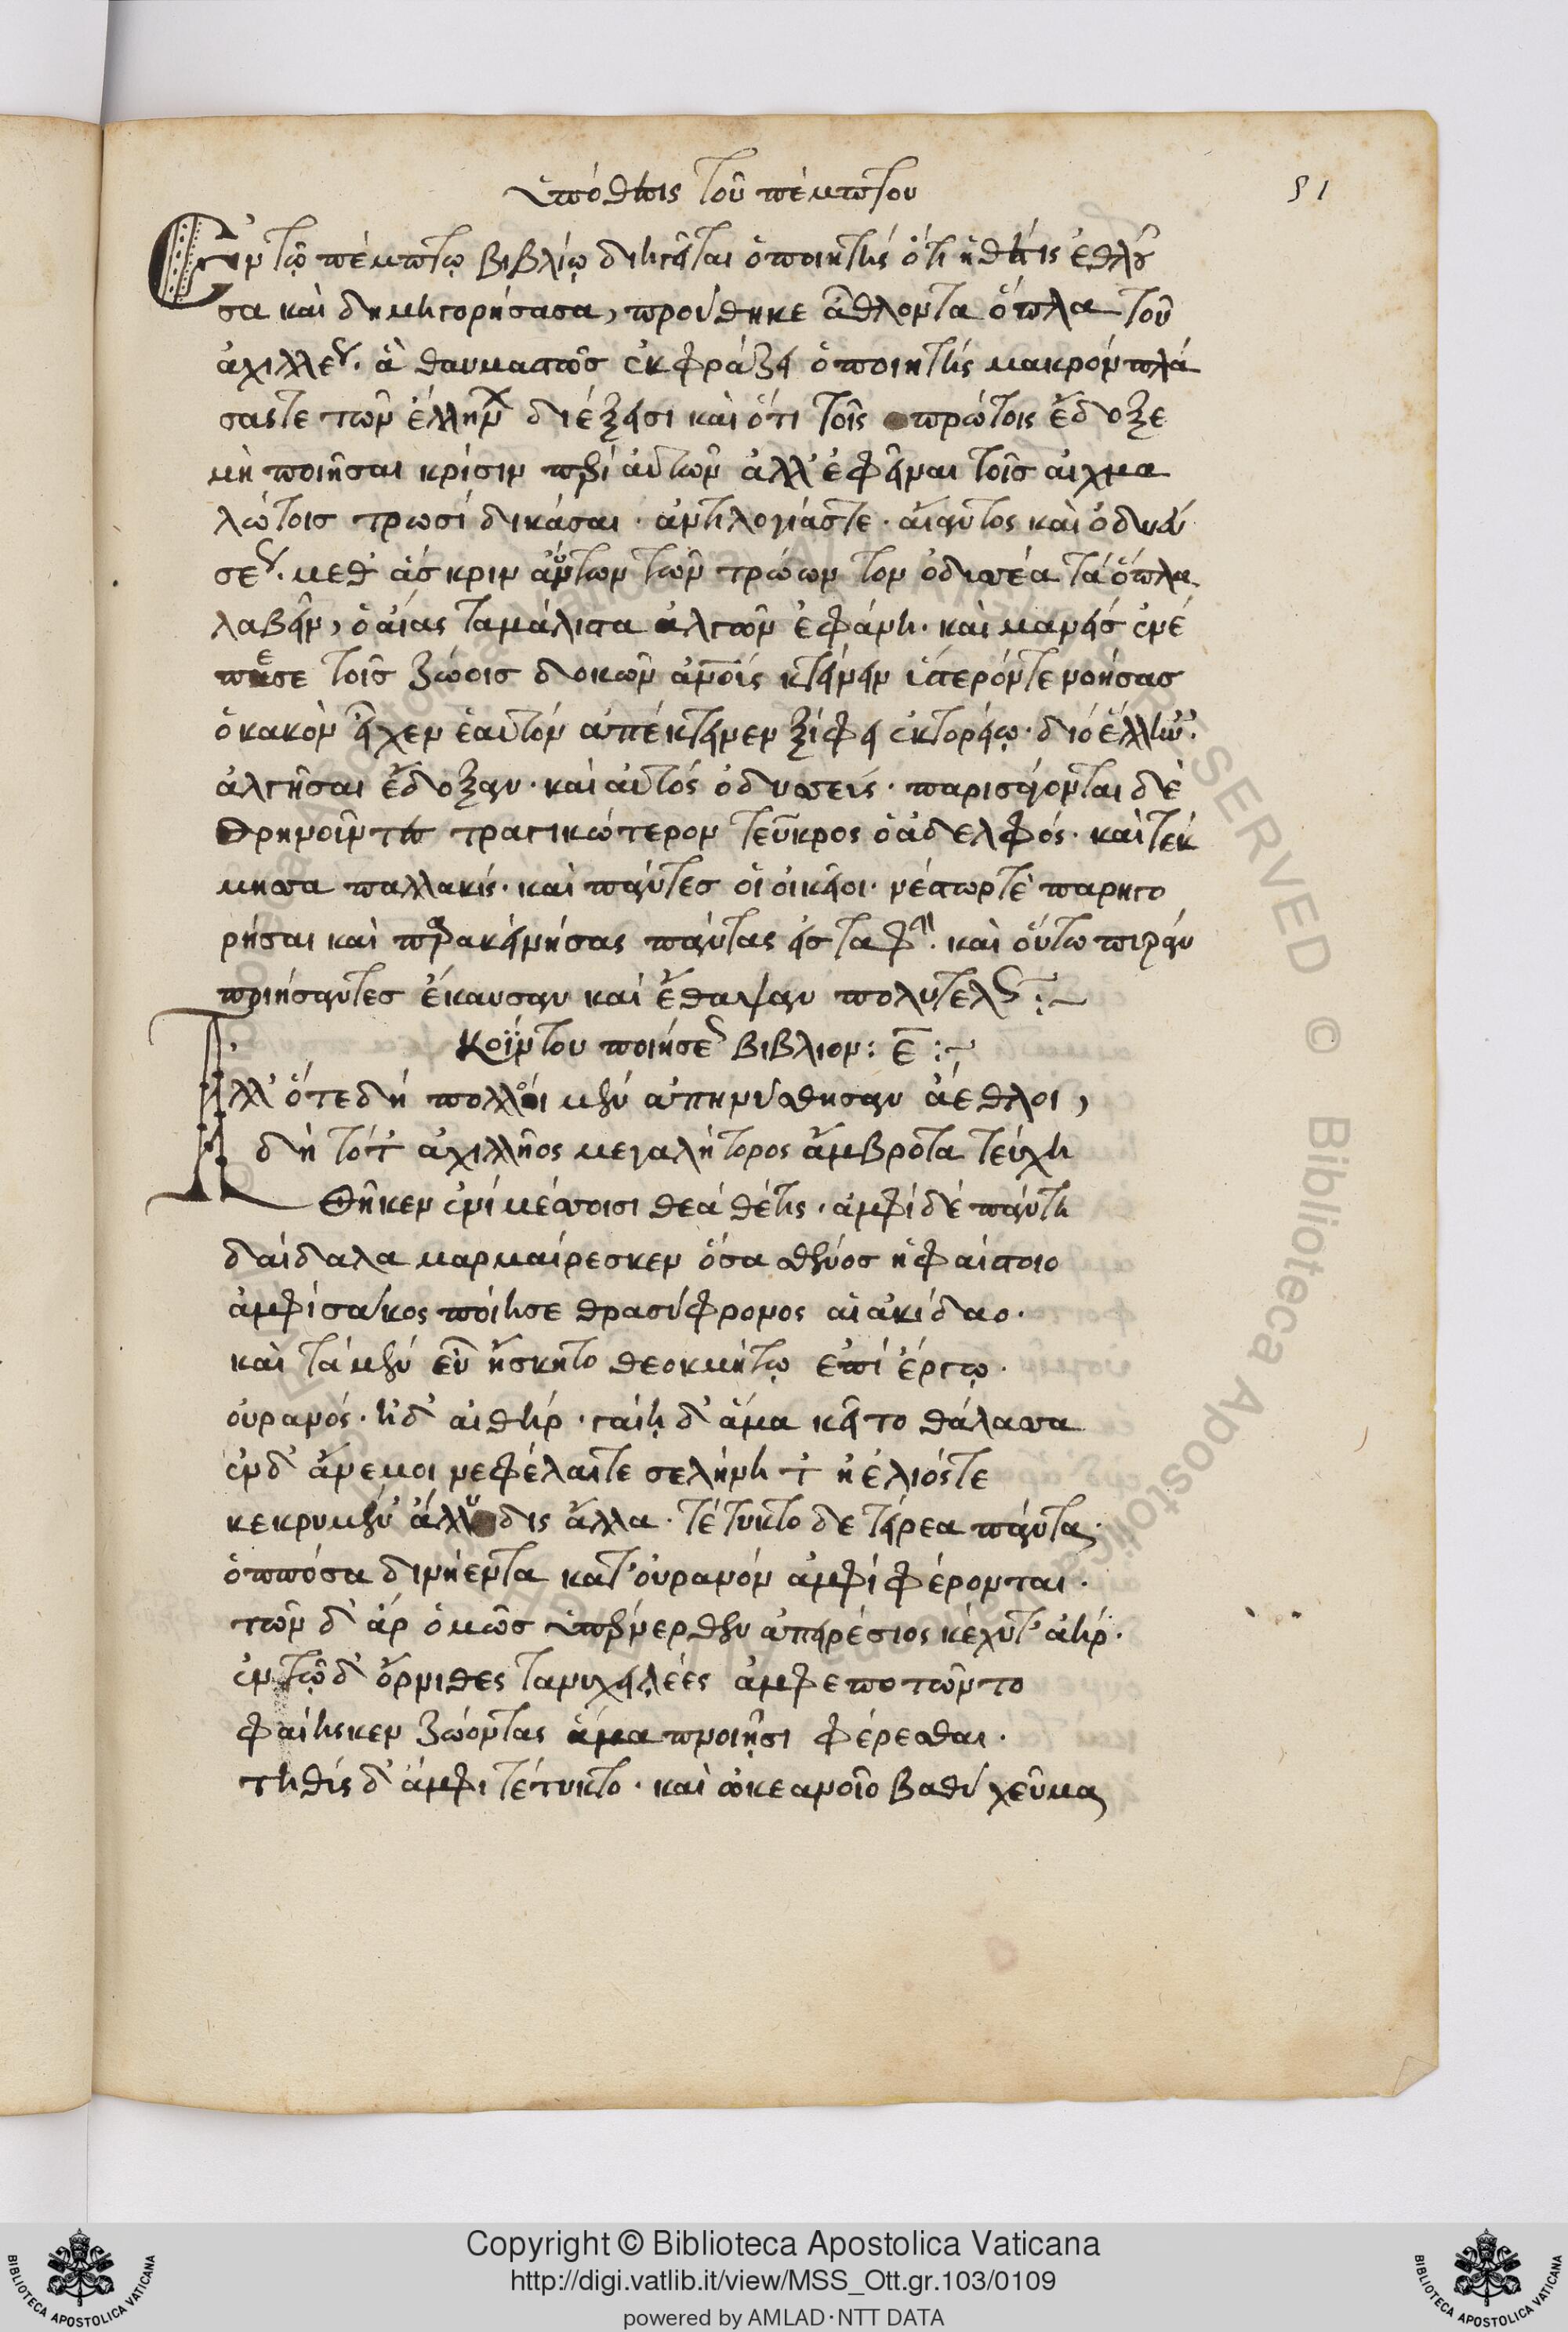 ὑπόθεσις τοῦ πέμπτου
51
Ἐν τῷ πέμπτῳ βιβλίῳ διηγεῖται ὁ ποιητὴς ὅτι ἡ θέτις ἐθλοῦ
σα καὶ δημηγορήσασα, προύθηκε ἆθλον τὰ ὅπλα τοῦ
ἀχιλλέως. ἃ θαυμαστῶς ἐκφράζει ὁ ποιητὴς μακρὸν πλά
σας τε τῶν ἑλλήνων διέξεισι καὶ ὅτι τοῖς πρώτοις ἔδοξε
μὴ ποιῆσαι κρίσιν περὶ αὐτῶν ἀλλ' ἐφεῖναι τοῖς αἰχμα
λώτοις τρωσὶ δικάσαι. ἀντιλογίας τε. αἴαντος καὶ ὀδυσ
σέως. μεθ' ἃς κριν αύτων τῶν τρώων τον ὀδυσσέα τὰ ὅπλα
λαβεῖν, ὁ αἴας τα μάλιστα ἀλγῶν ἐφάνη. καὶ μανεὶς ἐνέ
πεσε τοῖς ζώοις δοκῶν κτείνειν ὕστερόν τε νοήσας
ὁ κακὸν εἶχεν ἑαυτὸν ἀπέκτεινεν ξίφει ἑκτορείῳ. διὸ ἕλληνες
ἀλγῆσαι ἔδοξαν. καὶ αὐτὸς ὀδυσσεύς. παρισάγονται δὲ
θρηνοῦντες τραγικώτερον τεῦκρος ὁ ἀδελφός. καὶ τέκ
μησσα παλλακίς. καὶ πάντες οἱ οἰκεῖοι. νέστωρ τὲ παρηγο
ρήσαι καὶ παρακεινήσας πάντας εἰς ταφήν. καὶ οὕτω πυρὰν
ποιήσαντες ἔκαυσαν καὶ ἔθαψαν πολυτελῶς:~
Κοΐντου ποιήσεως βιβλίον: Ε:~
Ἀλλ' ὅτε δὴ πολλοὶ μὲν ἀπηνύσθησαν ἄεθλοι,
δὴ τότ' ἀχιλλῆος μεγαλήτορος ἄμβροτα τεύχη
θῆκεν ἐνὶ μέσσοισι θεὰ θέτις. ἀμφὶ δὲ πάντη
δαίδαλα μαρμαίρεσκεν ὅσα σθένος ἡφαίστοιο
ἀμφὶ σάκος ποίησε θρασύφρονος αἰακίδαο.
καὶ τὰ μὲν εὖ ἤσκητο θεοκμήτῳ ἐπὶ ἔργῳ.
οὐρανός. ἠδ' αἰθήρ. γαίῃ δ' ἅμα κεῖτο θάλασσα
ἐν δ' ἄνεμοι νεφέλαι τε σελήνη τ' ἠέλιός τε
κεκρυμέν' ἄλλυδις ἄλλα. τέτυκτο δε τείρεα πάντα.
ὁππόσα δινήεντα κατ' οὐρανὸν ἀμφιφέρονται.
τῶν δ' ἄρ ὁμῶς ὑπένερθεν ἀπειρέσιος κέχυτ' ἀήρ.
ἐν τῷ δ' ὄρνιθες τανυχειλέες ἀμφεποτῶντο
φαίης κεν ζώοντας ἅμα πνοιῇσι φέρεσθαι.
τηθὺς δ' ἀμφιτέτυκτο. καὶ ὠκεανοῖο βαθὺ χεῦμα
Copyright © Biblioteca Apostolica Vaticana
http://digi.vatlib.it/view/MSS_Ott.gr.103/0109
powered by AMLAD·NTT DATA